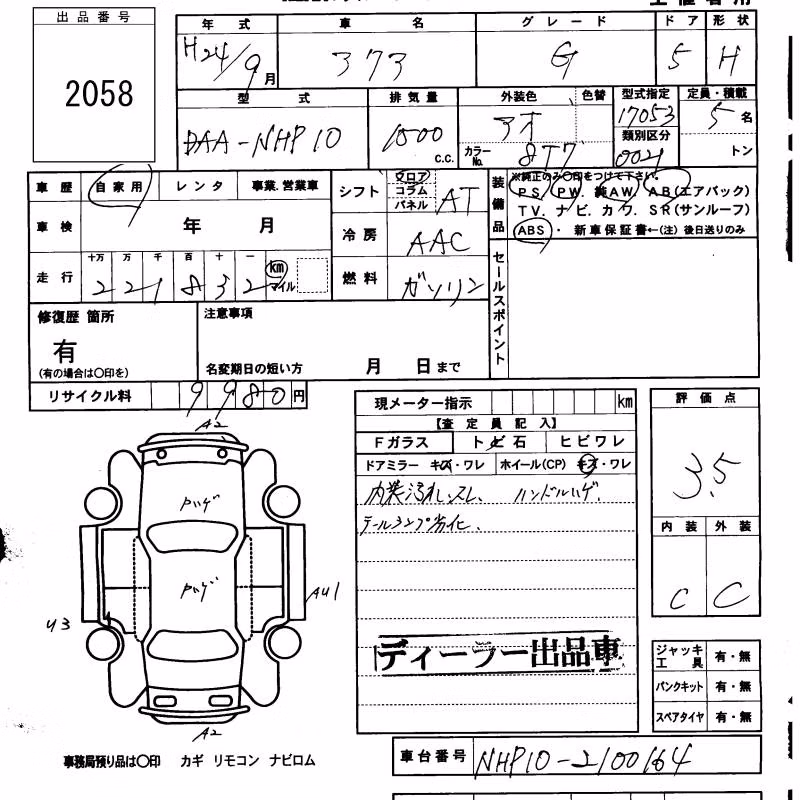 出品番号
2058
年式 車名 グレード ドア 形状
H24/9月 373 G 5 H
型式 排気量 外装色 色替 型式指定 定員・積載
DAA-NHP10 1500 C.C. アオ 17053 5名
カラーNo. 8T7 類別区分 0021 トン
車歴 自家用 レンタ 事業.営業車 シフト フロア コラム パネル AT
装備品 ※純正のみ○印をつけて下さい。
PS. PW. 純AW. AB(エアバック)
TV. ナビ. カワ. SR(サンルーフ)
ABS・ 新車保証書←(注) 後日送りのみ
車検 年 月 冷房 AAC
走行 十万 万 千 百 十 一 km マイル
221832 燃料 ガソリン
セールスポイント
修復歴 箇所 注意事項
有
(有の場合は○印を) 名変期日の短い方 月 日まで
リサイクル料 9980円
現メーター指示 km
【査定員記入】
Fガラス トビ石 ヒビワレ
ドアミラー キズ・ワレ ホイール(CP) キズ・ワレ
内装汚れ、スレ、ハンドルハゲ.
テールランプ劣化、
評価点
3.5
内装 外装
C C
A2
Pハゲ
Pハゲ
AU1
U3
A2
ディーラー出品車
ジャッキ工具 有・無
パンクキット 有・無
スペアタイヤ 有・無
事務局預り品は○印 カギ リモコン ナビロム
車台番号 NHP10-2100164